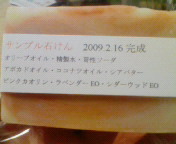 サンプル石けん 2009.2.16 完成
オリーブオイル・精製水・苛性ソーダ
アボカドオイル・ココナツオイル・シアバター
ピンクカオリン・ラベンダーEO・シダーウッドEO